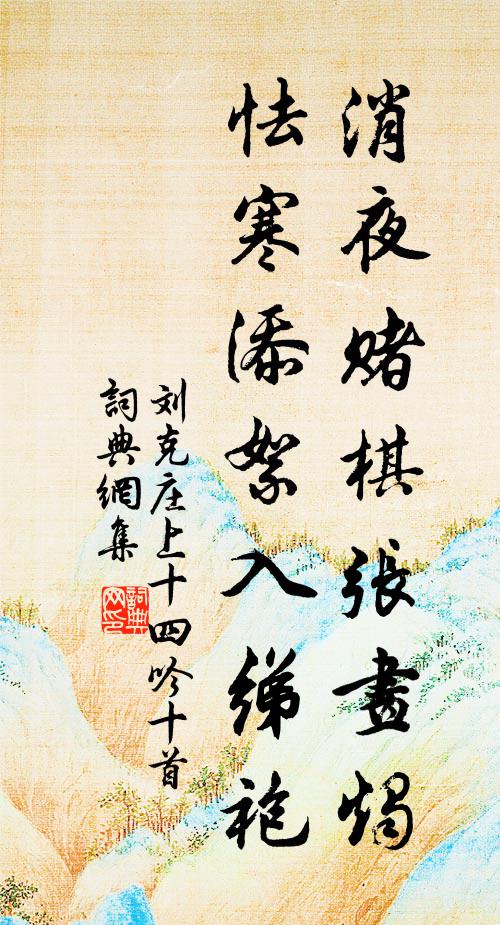 消夜賭棋張畫燭
怯寒添絮入綈袍
刘克庄上十四吟十首
詞典網集
詞典网印